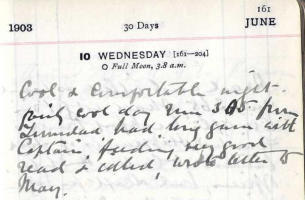 161
1903 30 Days JUNE
10 WEDNESDAY [161—204]
O Full Moon, 3.8 a.m.
Cool & comfortable night.
fairly cool day run 305 from
Trinidad had long game with
Captain, feeding very good
read & called, wrote letter to
May.